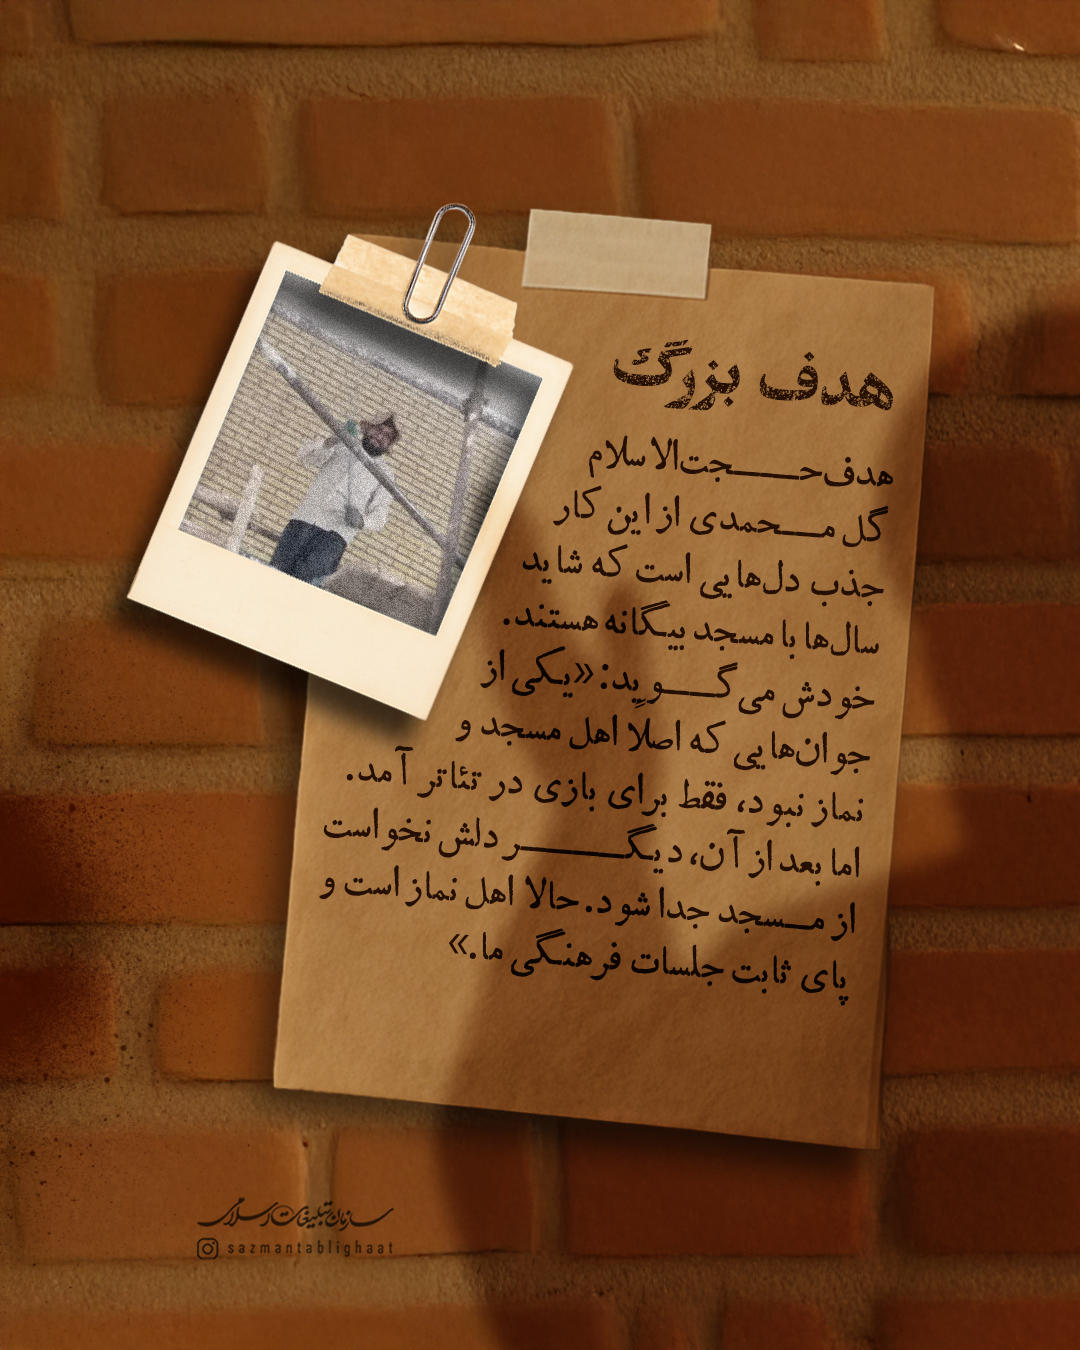 هدف بزرگ
هدف حجت‌الاسلام
گل محمدی از این کار
جذب دل‌هایی است که شاید
سال‌ها با مسجد بیگانه هستند.
خودش می‌گوید: «یکی از
جوان‌هایی که اصلاً اهل مسجد و
نماز نبود، فقط برای بازی در تئاتر آمد.
اما بعد از آن، دیگر دلش نخواست
از مسجد جدا شود. حالا اهل نماز است و
پای ثابت جلسات فرهنگی ما.»
سازمان تبلیغات اسلامی
sazmantablighaat